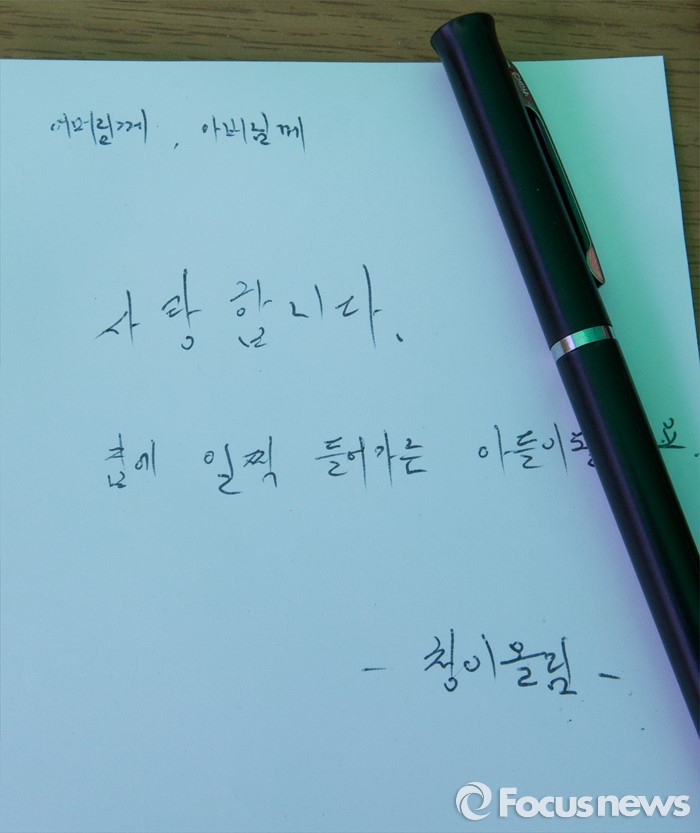 어머님께, 아버님께
사랑합니다.
집에 일찍 들어가는
- 청이올림 -
Focusnews